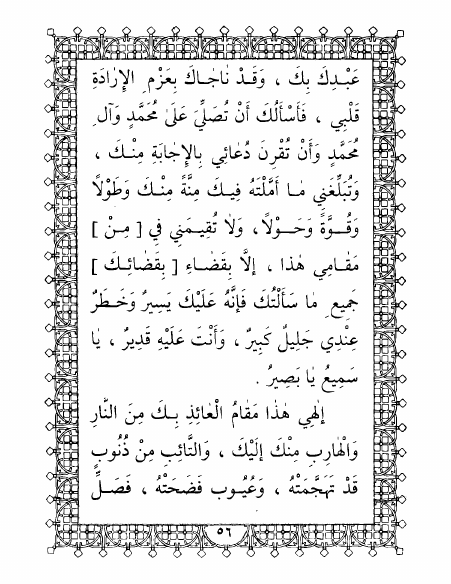 عَبْدِكَ بِكَ ، وَقَدْ نَاجَاكَ بِعَزْمِ الإِرَادَةِ
قَلْبِي ، فَأَسْأَلُكَ أَنْ تُصَلِّيَ عَلَىٰ مُحَمَّدٍ وَآلِ
مُحَمَّدٍ وَأَنْ تُقْرِنَ دُعَائِي بِالإِجَابَةِ مِنْكَ ،
وَتُبَلِّغَنِي مَا أَمَّلْتَهُ فِيكَ مِنَّةً مِنْكَ وَطَوْلًا
وَقُوَّةً وَحَوْلًا، وَلَا تُقِيمَنِي فِي [ مِنْ ]
مَقَامِي هٰذَا ، إِلَّا بِقَضَاءِ [ بِقَضَائِكَ ]
جَمِيعِ مَا سَأَلْتُكَ فَإِنَّهُ عَلَيْكَ يَسِيرٌ وَخَطَرٌ
عِنْدِي جَلِيلٌ كَبِيرٌ ، وَأَنْتَ عَلَيْهِ قَدِيرٌ ، يَا
سَمِيعُ يَا بَصِيرُ .
إِلٰهِي هٰذَا مَقَامُ الْعَائِذِ بِكَ مِنَ النَّارِ
وَالْهَارِبِ مِنْكَ إِلَيْكَ ، وَالتَّائِبِ مِنْ ذُنُوبٍ
قَدْ تَهَجَّمَتْهُ ، وَعُيُوبٍ فَضَحَتْهُ ، فَصَلِّ
٥٦